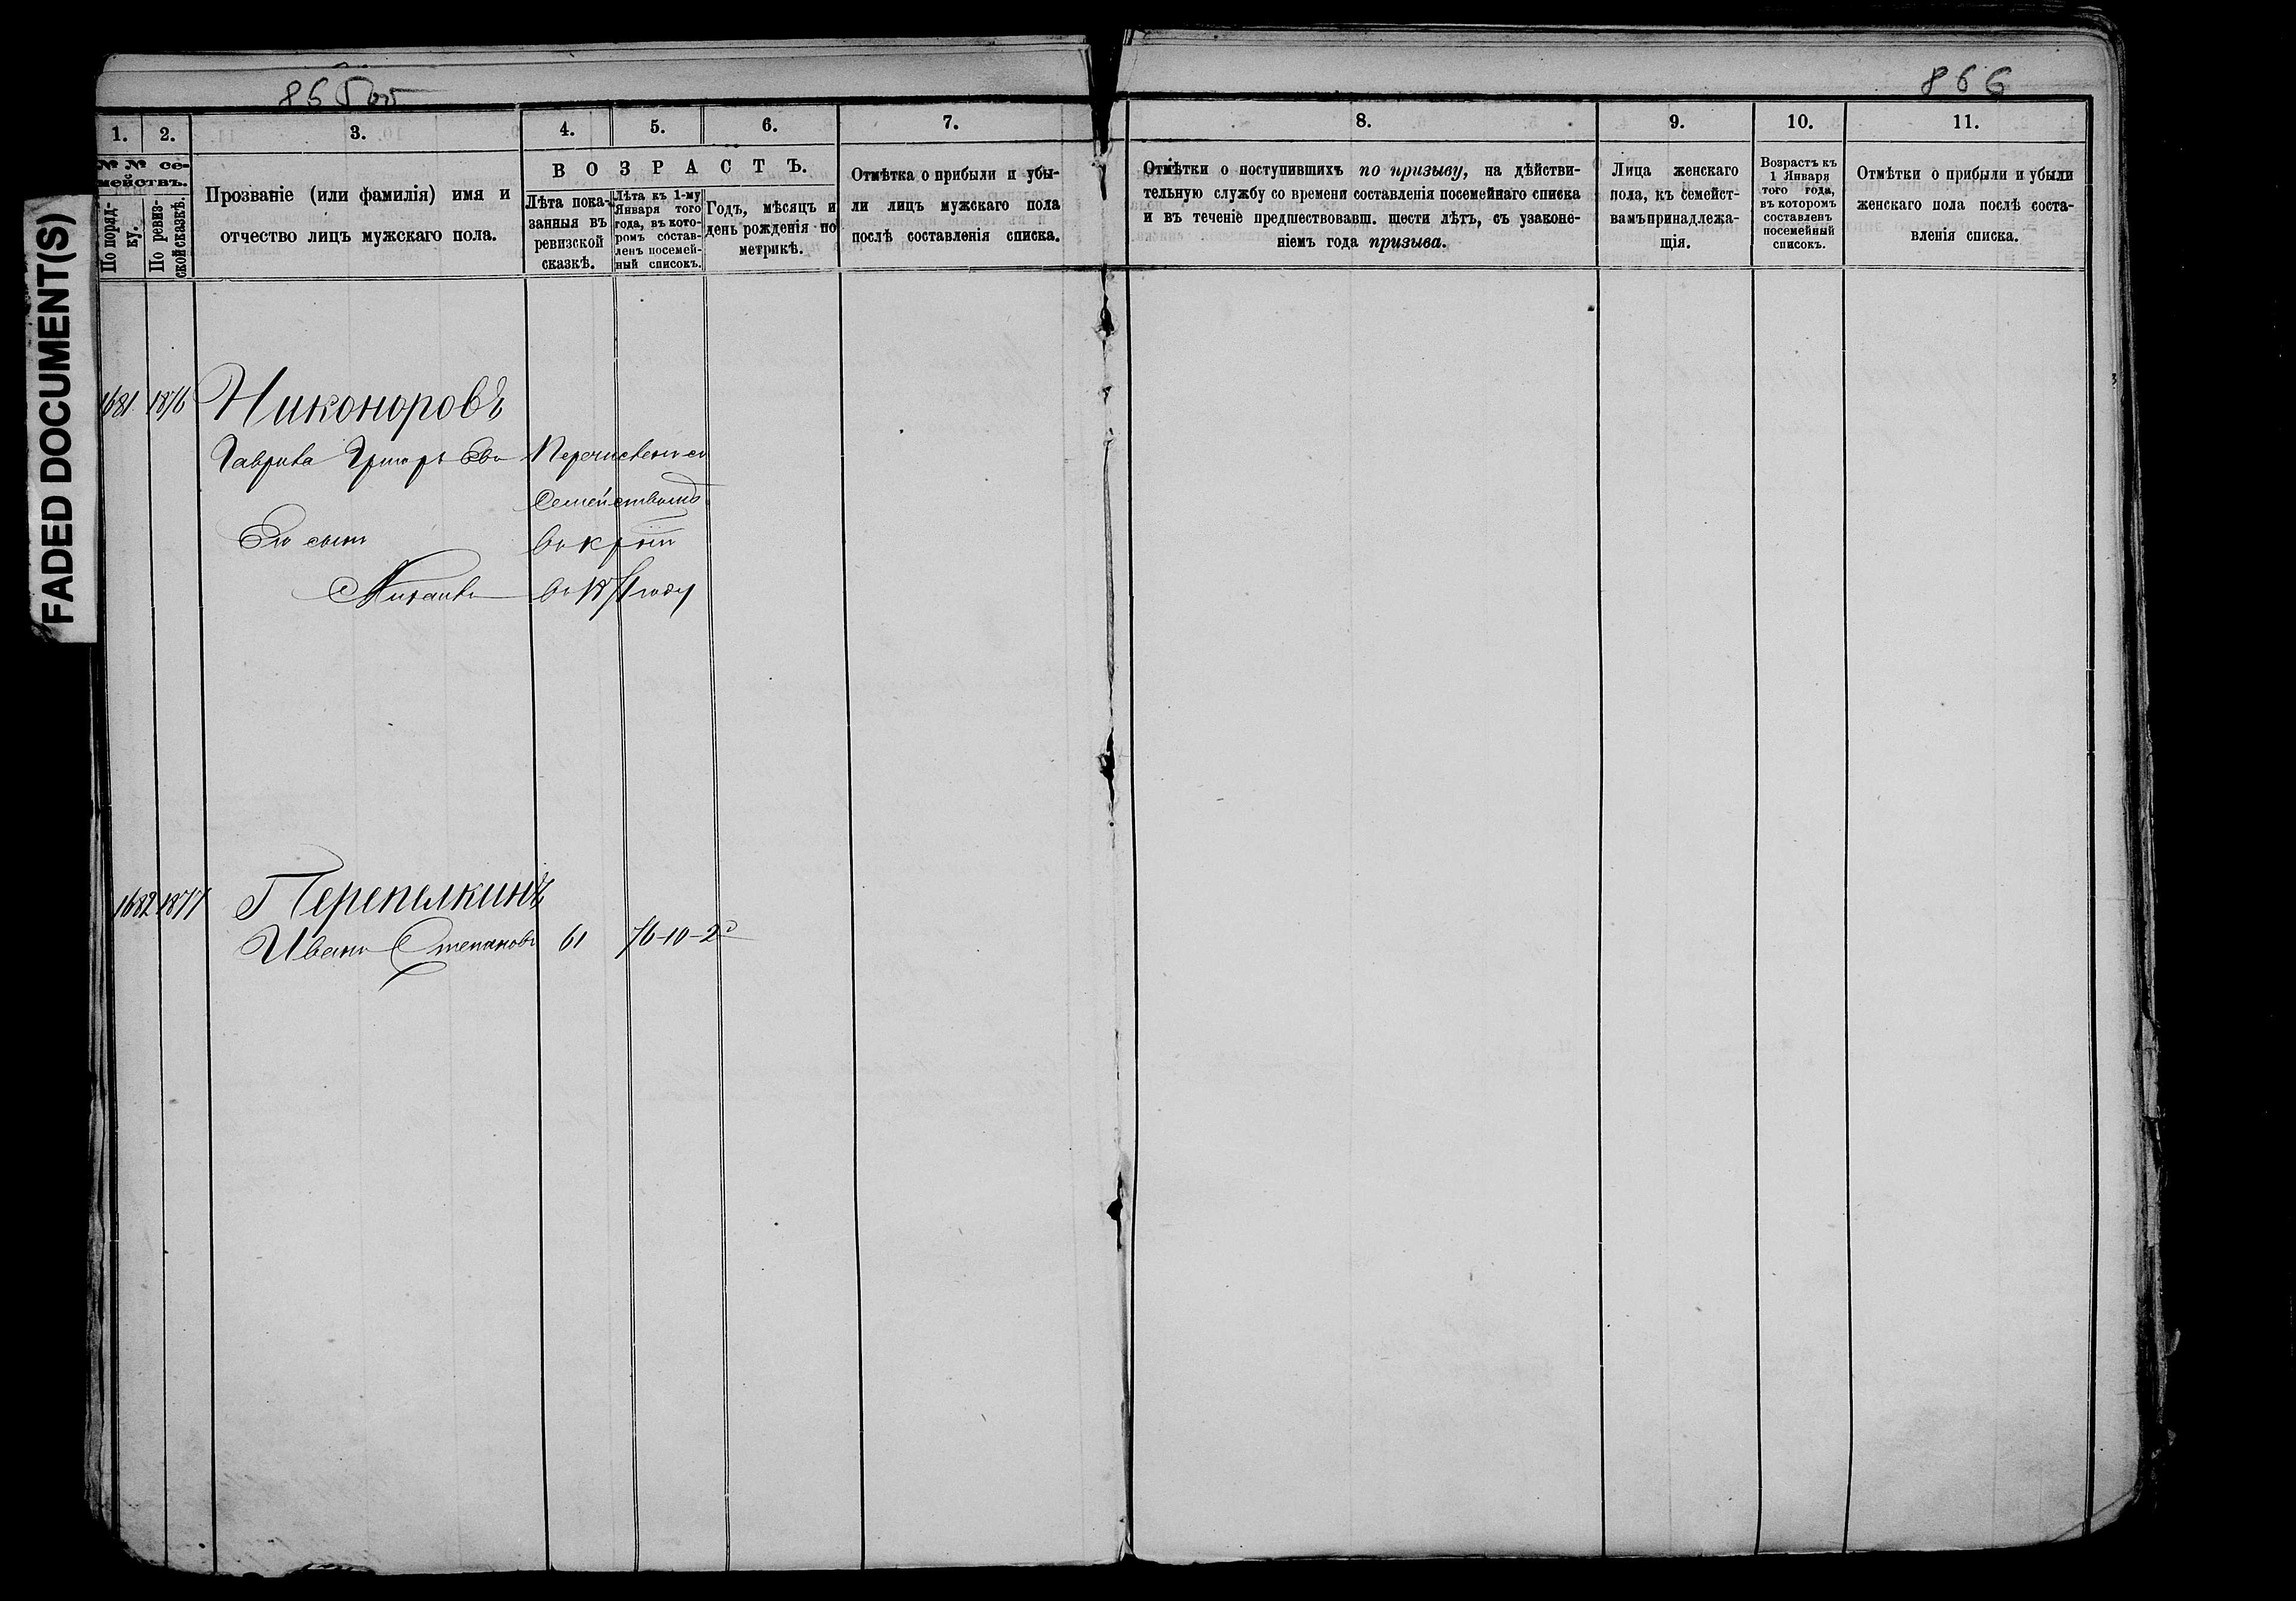 FADED DOCUMENT(S)
865об
866
1.
2.
3.
4.
5.
6.
7.
8.
9.
10.
11.
№ № се-
мействъ.
По поряд-
ку.
По ревиз-
ской сказкѣ.
Прозваніе (или фамилія) имя и
отчество лицъ мужскаго пола.
ВОЗРАСТЪ.
Лѣта пока-
занныя въ
ревизской
сказкѣ.
Лѣта къ 1-му
Января того
года, въ кото-
ромъ состав-
ленъ посемей-
ный списокъ.
Годъ, мѣсяцъ и
день рожденія по
метрикѣ.
Отмѣтка о прибыли и убы-
ли лицъ мужскаго пола
послѣ составленія списка.
Отмѣтки о поступившихъ по призыву, на дѣйстви-
тельную службу со времени составленія посемейнаго списка
и въ теченіе предшествовавш. шести лѣтъ, съ узаконе-
ніемъ года призыва.
Лица женскаго
пола, къ семейст-
вамъ принадлежа-
щія.
Возрастъ къ
1 Января
того года,
въ которомъ
составленъ
посемейный
списокъ.
Отмѣтки о прибыли и убыли
женскаго пола послѣ соста-
вленія списка.
1681 1876 Никоноровъ
Гаврила Григорьевъ Перечисленъ съ
Семействомъ
Его сынъ
Михаилъ въ 1871 году
1682 1877 Перепелкинъ
Иванъ Степановъ 61 76-10-2